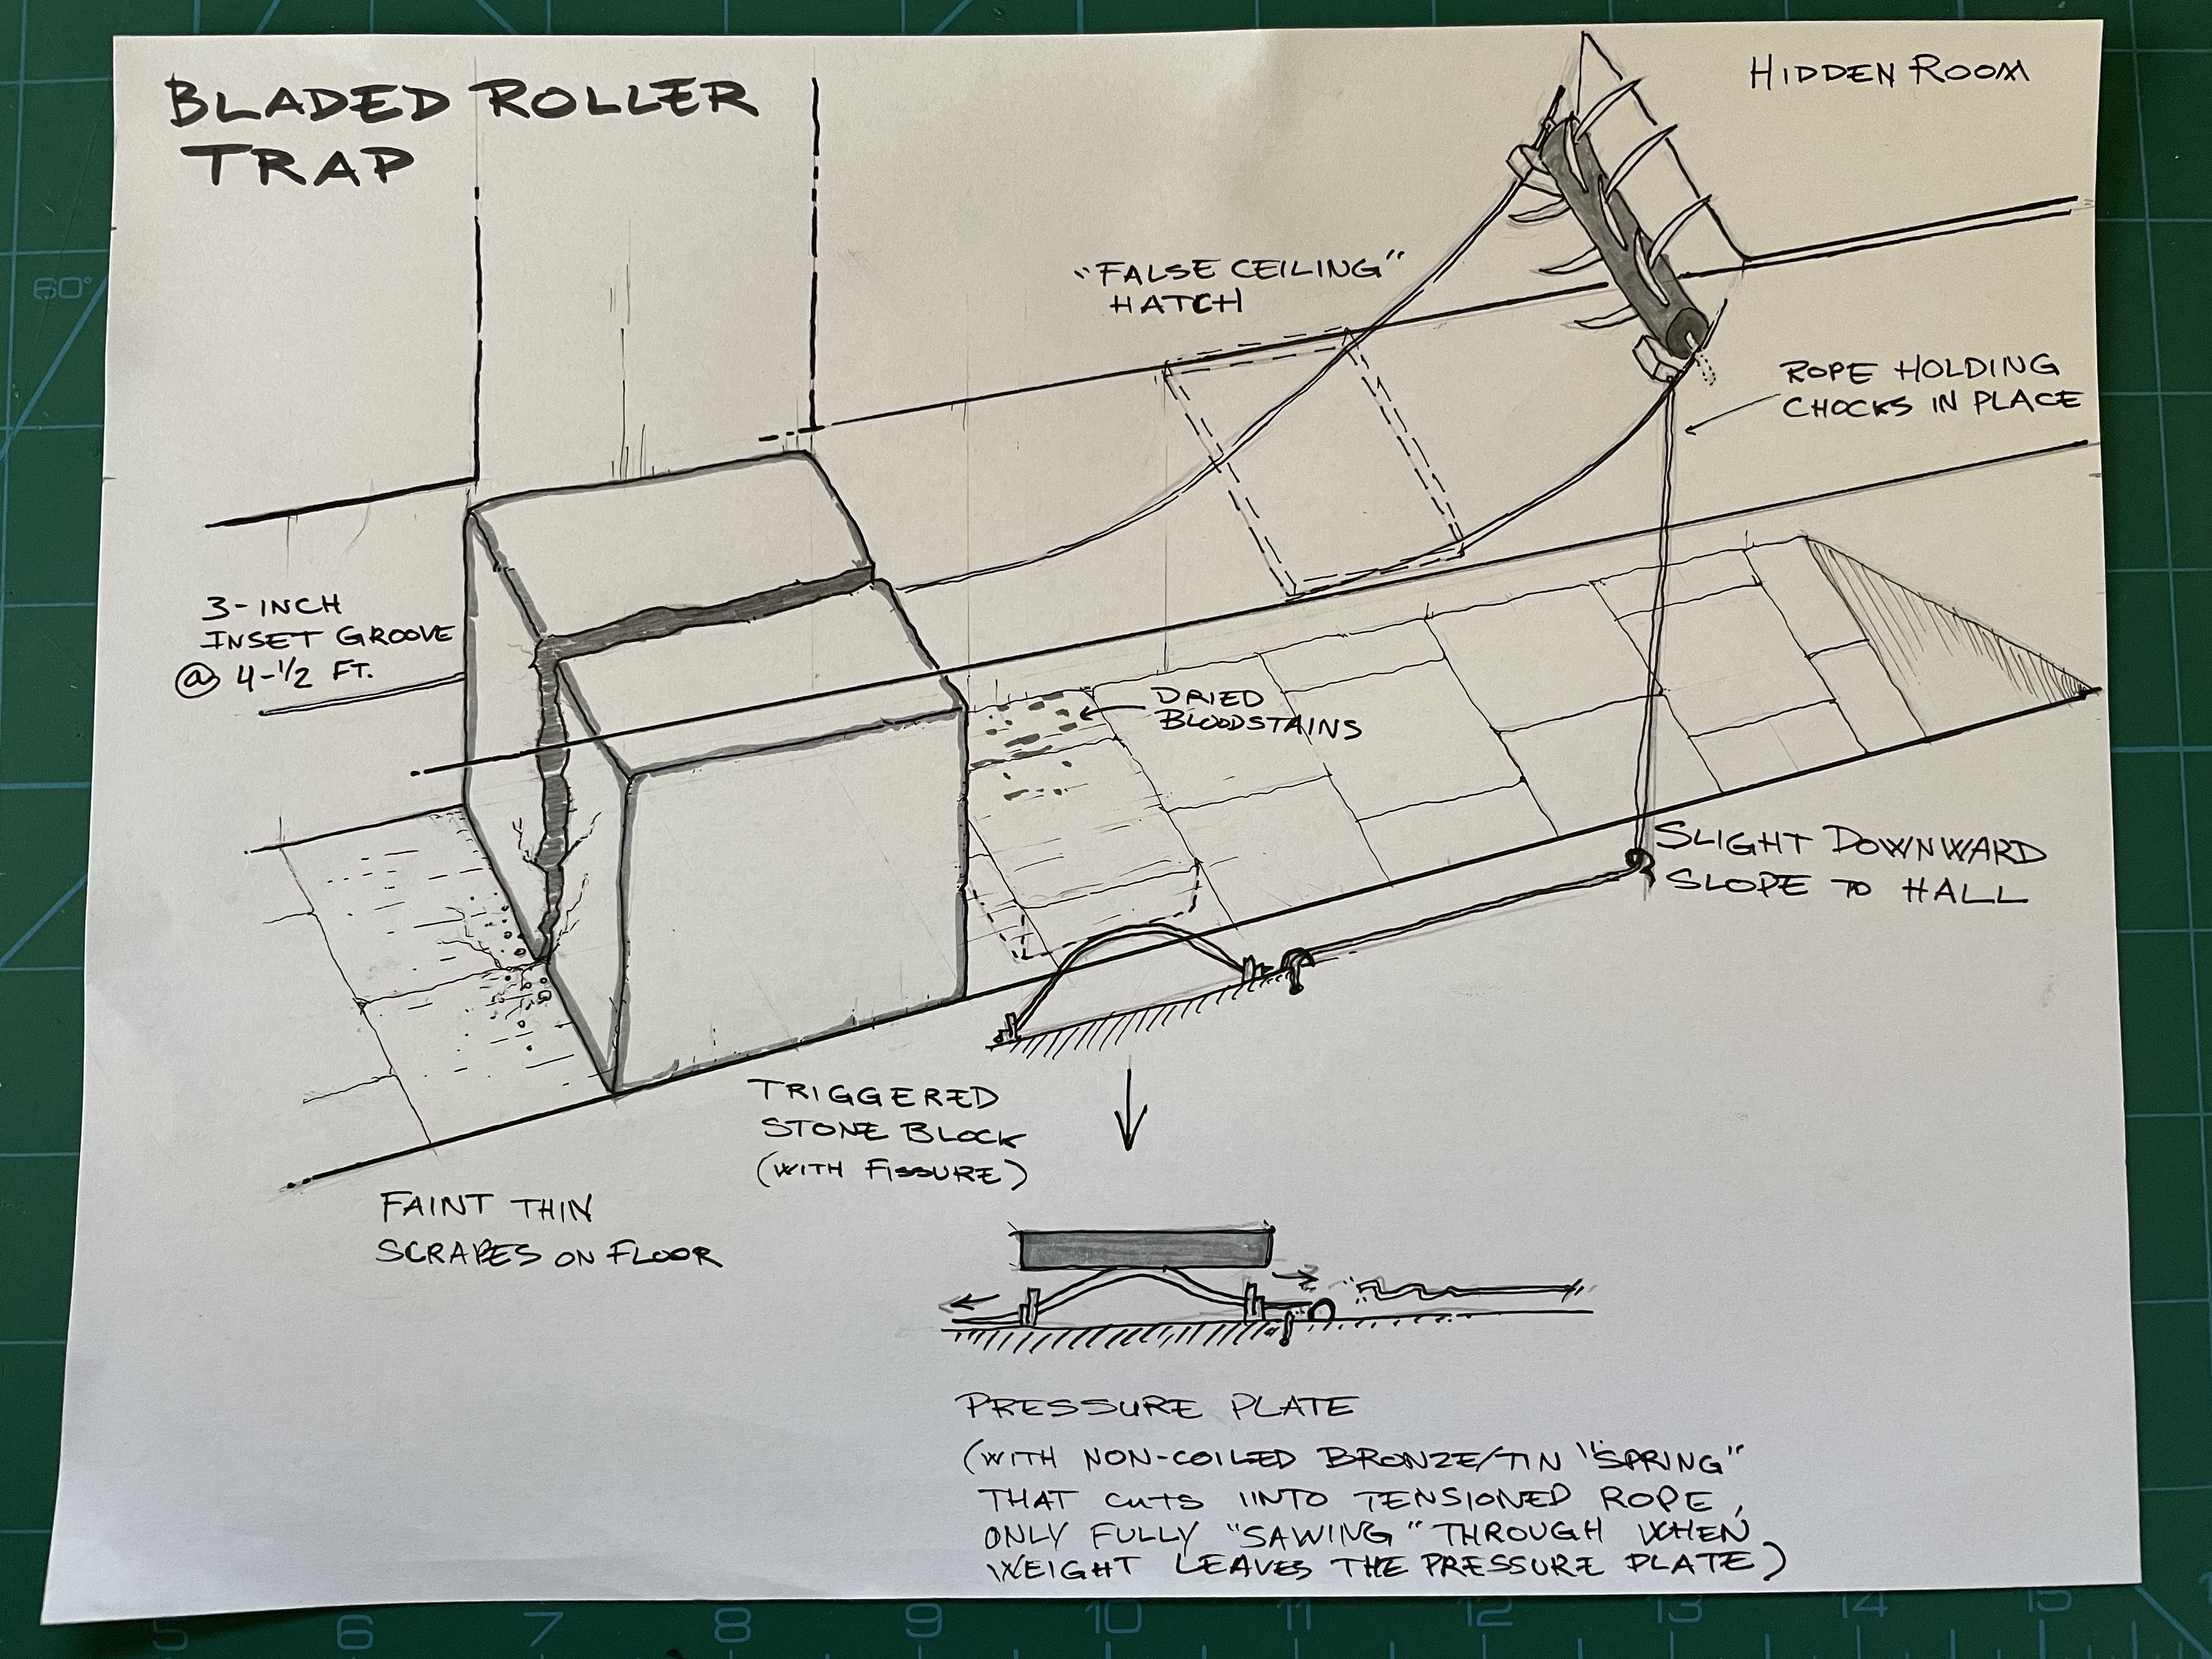 BLADED ROLLER
TRAP
HIDDEN ROOM
"FALSE CEILING"
HATCH
ROPE HOLDING
CHOCKS IN PLACE
3-INCH
INSET GROOVE
@ 4-1/2 FT.
DRIED
BLOODSTAINS
SLIGHT DOWNWARD
SLOPE TO HALL
TRIGGERED
STONE BLOCK
(WITH FISSURE)
FAINT THIN
SCRAPES ON FLOOR
PRESSURE PLATE
(WITH NON-COILED BRONZE/TIN "SPRING"
THAT CUTS INTO TENSIONED ROPE,
ONLY FULLY "SAWING" THROUGH WHEN
WEIGHT LEAVES THE PRESSURE PLATE)
60°
5 6 7 8 9 10 11 12 13 14 15